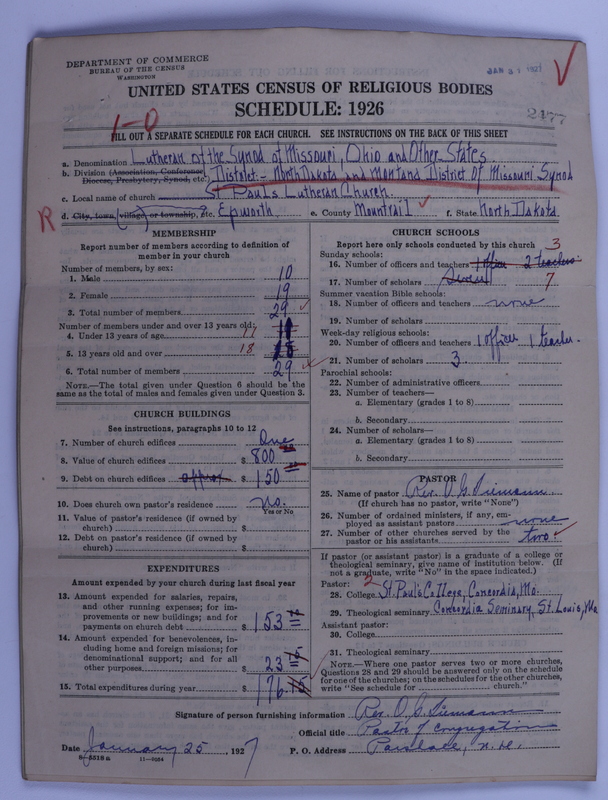 DEPARTMENT OF COMMERCE
BUREAU OF THE CENSUS
WASHINGTON
JAN 31 1927
UNITED STATES CENSUS OF RELIGIOUS BODIES
SCHEDULE: 1926
2477
1-0
FILL OUT A SEPARATE SCHEDULE FOR EACH CHURCH. SEE INSTRUCTIONS ON THE BACK OF THIS SHEET
a. Denomination Lutheran of the Synod of Missouri, Ohio and Other States
b. Division (Association, Conference, Diocese, Presbytery, Synod, etc.) District:- North Dakota and Montana District of Missouri Synod
c. Local name of church St Paul's Lutheran Church.
R d. City, town, (village) or township, etc. Epworth e. County Mountrail f. State North Dakota
MEMBERSHIP
Report number of members according to definition of
member in your church
Number of members, by sex:
1. Male 10
2. Female 19
3. Total number of members 29
Number of members under and over 13 years old:
4. Under 13 years of age 11
5. 13 years old and over 18 18
6. Total number of members 29
NOTE.—The total given under Question 6 should be the
same as the total of males and females given under Question 3.
CHURCH BUILDINGS
See instructions, paragraphs 10 to 12
7. Number of church edifices One
8. Value of church edifices $ 800
9. Debt on church edifices approx. $ 150
10. Does church own pastor's residence no.
Yes or No
11. Value of pastor's residence (if owned by
church) $
12. Debt on pastor's residence (if owned by
church) $
EXPENDITURES
Amount expended by your church during last fiscal year
13. Amount expended for salaries, repairs,
and other running expenses; for im-
provements or new buildings; and for
payments on church debt $ 153
14. Amount expended for benevolences, in-
cluding home and foreign missions; for
denominational support; and for all
other purposes $ 23 15
15. Total expenditures during year $ 176.15
CHURCH SCHOOLS
Report here only schools conducted by this church
Sunday schools: 3
16. Number of officers and teachers 1 officer 2 teachers
17. Number of scholars Seven 7
Summer vacation Bible schools:
18. Number of officers and teachers none
19. Number of scholars
Week-day religious schools:
20. Number of officers and teachers 1 officer 1 teacher.
21. Number of scholars 3.
Parochial schools:
22. Number of administrative officers
23. Number of teachers—
a. Elementary (grades 1 to 8)
b. Secondary
24. Number of scholars—
a. Elementary (grades 1 to 8)
b. Secondary
PASTOR
25. Name of pastor Rev. O. C. Tiemann
(If church has no pastor, write "None")
26. Number of ordained ministers, if any, em-
ployed as assistant pastors none
27. Number of other churches served by the
pastor or his assistants two
If pastor (or assistant pastor) is a graduate of a college or
theological seminary, give name of institution below. (If
not a graduate, write "No" in the space indicated.)
Pastor: 2
28. College St. Paul's College, Concordia, Mo.
29. Theological seminary Concordia Seminary, St. Louis, Mo
Assistant pastor:
30. College
31. Theological seminary
NOTE.—Where one pastor serves two or more churches,
Questions 28 and 29 should be answered only on the schedule
for one of the churches; on the schedules for the other churches,
write "See schedule for church."
Signature of person furnishing information Rev. O. C. Tiemann
Official title Pastor of Congregation
Date January 25, 1927 P. O. Address Parshall, N. D.
8-5518a 11-9204